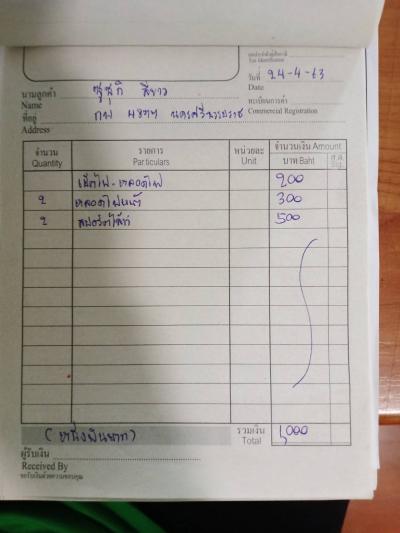 เลขประจำตัวผู้เสียภาษี
Tax Identification
วันที่ 24-4-63
Date
นามลูกค้า ซูซูกิ สีขาว
Name
ทะเบียนการค้า
Commercial Registration
ที่อยู่ กพ นครศรีธรรมราช
Address
จำนวน รายการ หน่วยละ จำนวนเงิน Amount
Quantity Particulars Unit บาท Baht ส.ต. Stg.
เช็คไฟ-หลอดไฟ 200
2 หลอดไฟหน้า 300
2 สปอร์ตไลท์ 500
(หนึ่งพันบาท) รวมเงิน 1,000
Total
ผู้รับเงิน
Received By
ขอรับเงินด้วยความขอบคุณ